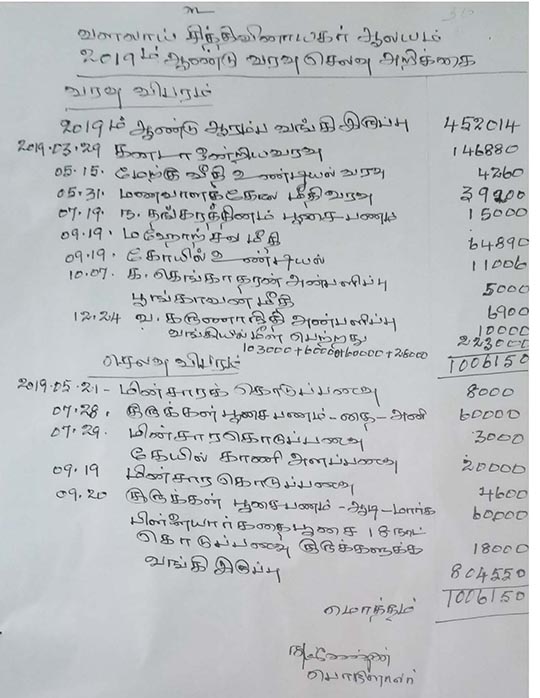 வளலாய் சித்திவிநாயகர் ஆலயம்
2019ம் ஆண்டு வரவு செலவு அறிக்கை
வரவு விபரம்
2019ம் ஆண்டு ஆரம்ப வங்கி இருப்பு 452014
2019.03.29 கனடா ஒன்றியவரவு 146880
05.15. மேற்கு வீதி உண்டியல் வரவு 4260
05.31. மணவாளக்கோல மீதி வரவு 39200
07.19. ந. தங்கரத்தினம் பூசை பணம் 15000
09.19. மஹோற்சவ மீதி 64890
09.19. கோயில் உண்டியல் 11006
10.07. க. கெங்காதரன் அன்பளிப்பு 5000
பூங்காவண மீதி 6900
12.24 வ. கருணாநிதி அன்பளிப்பு 10000
வங்கியில் மீள பெற்றது 223000
103000+60000+60000+26000
1006150
செலவு விபரம்
2019.05.21 - மின்சாரக் கொடுப்பனவு 8000
07.28. குருக்கள் பூசைபணம் - தை - ஆனி 60000
07.29. மின்சார கொடுப்பனவு 3000
கோயில் காணி அளப்பனவு 20000
09.19 மின்சார கொடுப்பனவு 4600
09.20 குருக்கள் பூசைபணம் - ஆடி - மார்க 60000
பிள்ளையார் கதை பூசை 18 நாட்
கொடுப்பனவு குருக்களுக்கு 18000
வங்கி இருப்பு 804550
மொத்தம் 1006150
பொருளாளர்